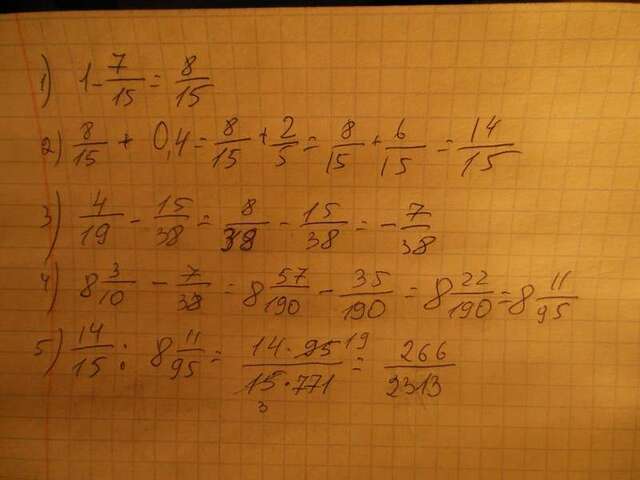 1) 1 - 7/15 = 8/15
2) 8/15 + 0,4 = 8/15 + 2/5 = 8/15 + 6/15 = 14/15
3) 4/19 - 15/38 = 8/38 - 15/38 = - 7/38
4) 8 3/10 - 7/38 = 8 57/190 - 35/190 = 8 22/190 = 8 11/95
5) 14/15 : 8 11/95 = 14 · 95 19/15 · 771 3 = 266/2313